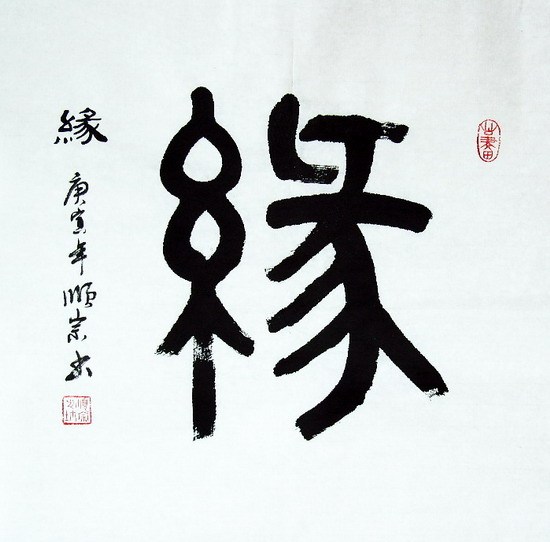 緣
緣
庚寅年順宗书